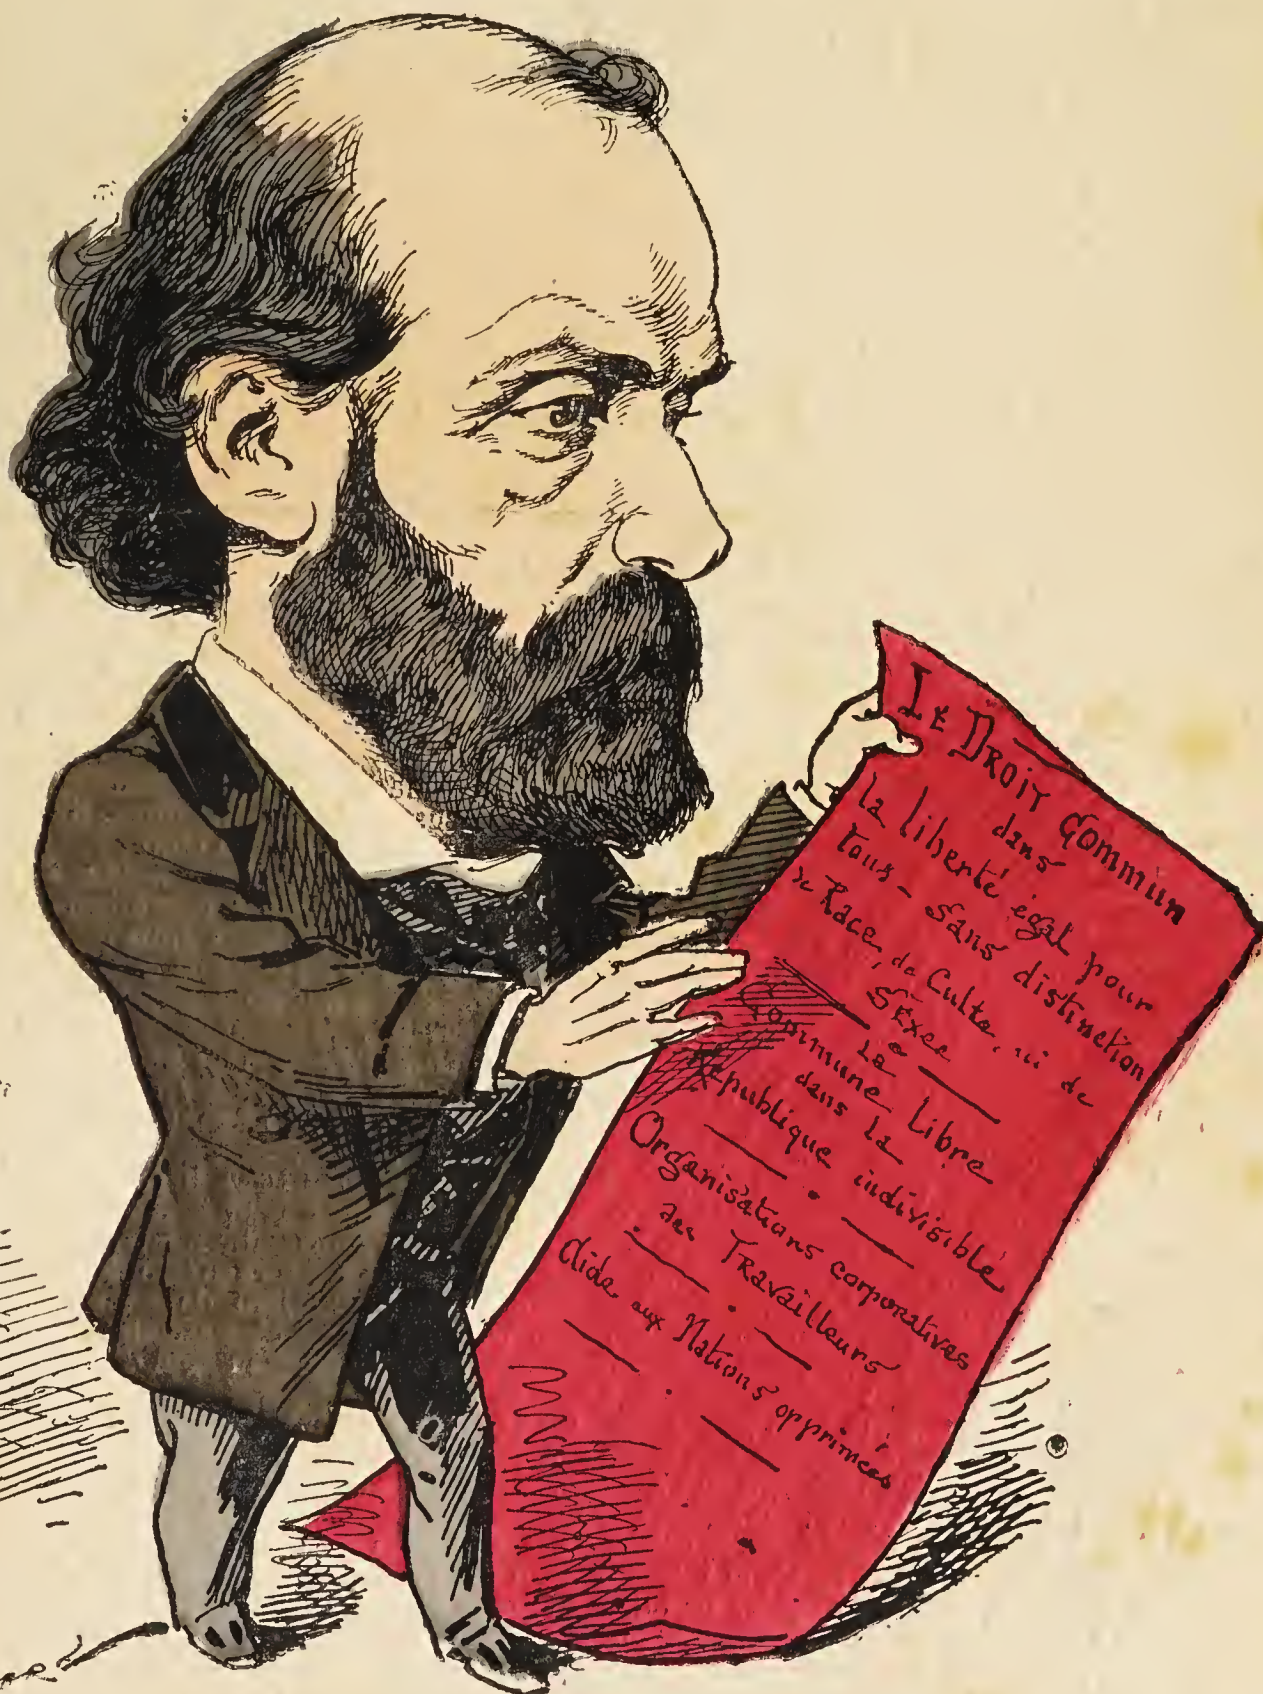 LE DROIT COMMUN
dans
la liberté égal pour
Tous - Sans distinction
de Race, de Culte, ni de
Sexe
La
Commune Libre
dans la
République indivisible
Organisations corporatives
des Travailleurs
Aide aux Nations opprimées